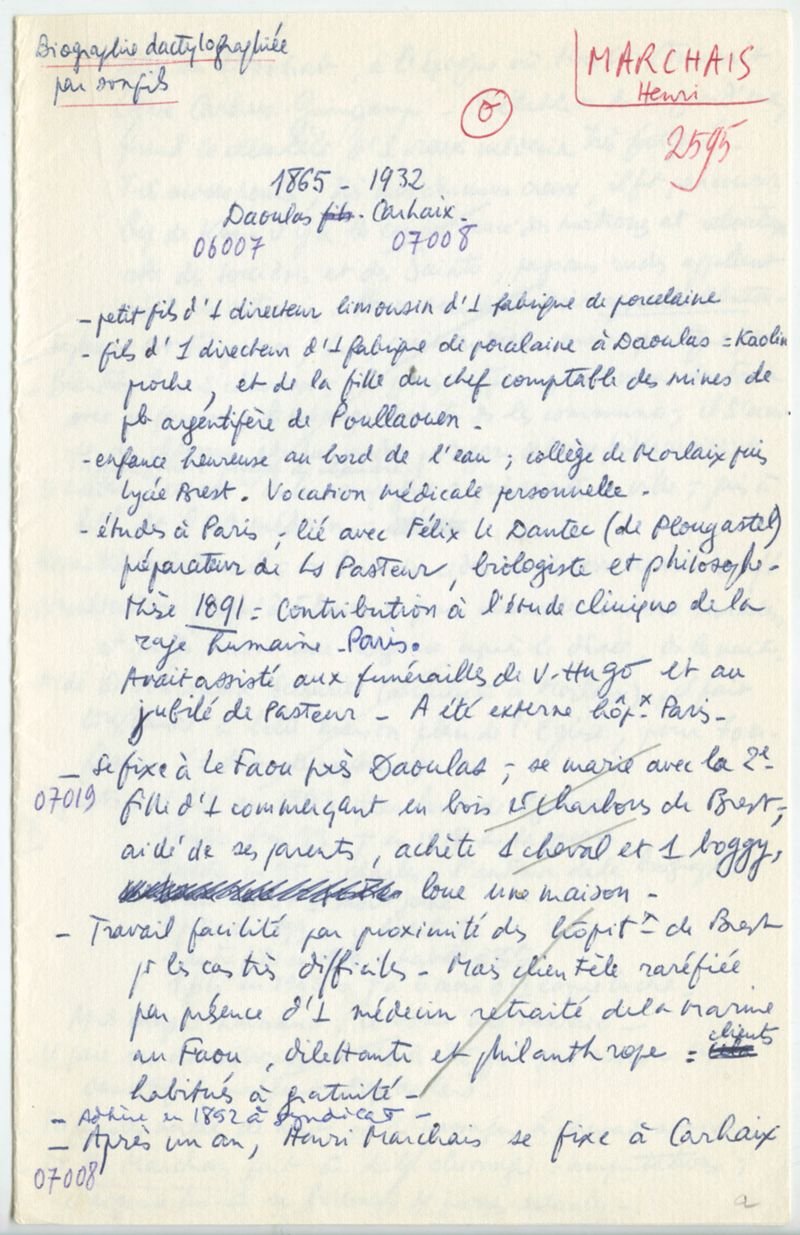 Biographie dactylographiée
par son fils
MARCHAIS
Henri
2595
1865 - 1932
Daoulas - Carhaix -
06007 07008
- petit fils d'1 directeur limousin d'1 fabrique de porcelaine
- fils d'1 directeur d'1 fabrique de porcelaine à Daoulas = Kaolin
proche, et de la fille du chef comptable des mines de
pb argentifère de Poullaouen -
- enfance heureuse au bord de l'eau ; collège de Morlaix puis
lycée Brest. Vocation médicale personnelle -
- études à Paris - lié avec Félix le Dantec (de Plougastel)
préparateur de Ls Pasteur, biologiste et philosophe -
Thèse 1891 = Contribution à l'étude clinique de la
rage humaine - Paris.
Avait assisté aux funérailles de V. Hugo et au
jubilé de Pasteur - A été externe hôp.x Paris -
- Se fixe à Le Faou près Daoulas ; se marie avec la 2e
07019 fille d'1 commerçant en bois et charbons de Brest ;
aidé de ses parents, achète 1 cheval et 1 boggy,
loue une maison -
- Travail facilité par proximité des hôpitx de Brest
pr les cas très difficiles - Mais clientèle raréfiée
par présence d'1 médecin retraité de la Marine
au Faou, dilettante et philanthrope = clients
habitués à gratuité -
- Adhère en 1892 à Syndicat -
- Après un an, Henri Marchais se fixe à Carhaix
07008
a